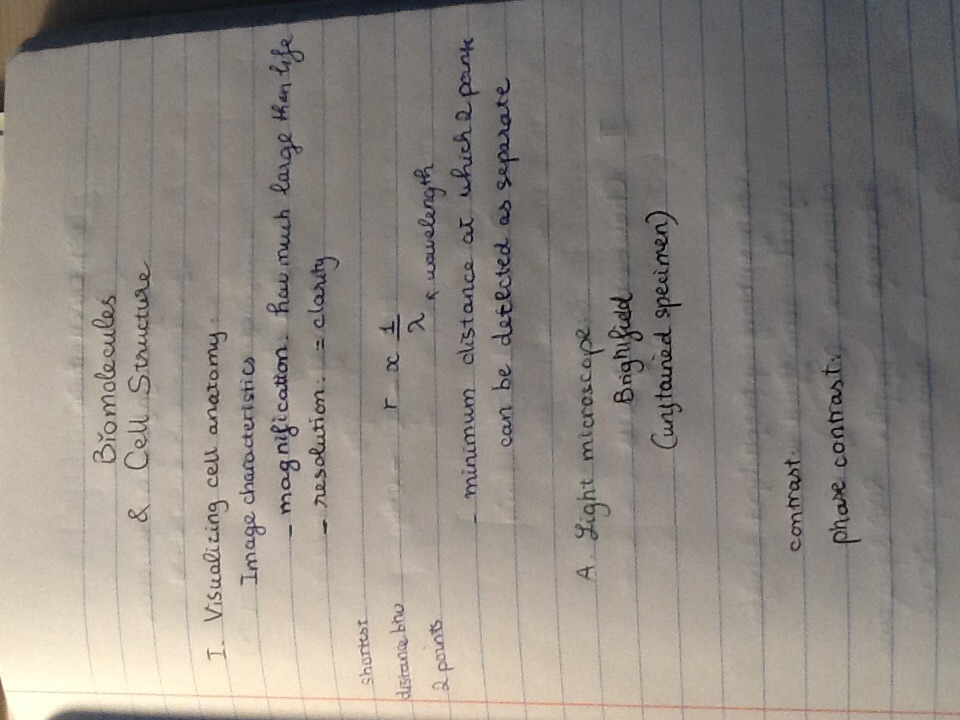 Biomolecules
& Cell Structure
I. Visualizing cell anatomy.
Image characteristics
- magnification: how much large than life
- resolution: = clarity
shortest
distance btw
2 points
r α 1/λ
wavelength
- minimum distance at which 2 points
can be detected as separate
A. Light microscope:
Brightfield
(unstained specimen)
contrast:
phase contrast: